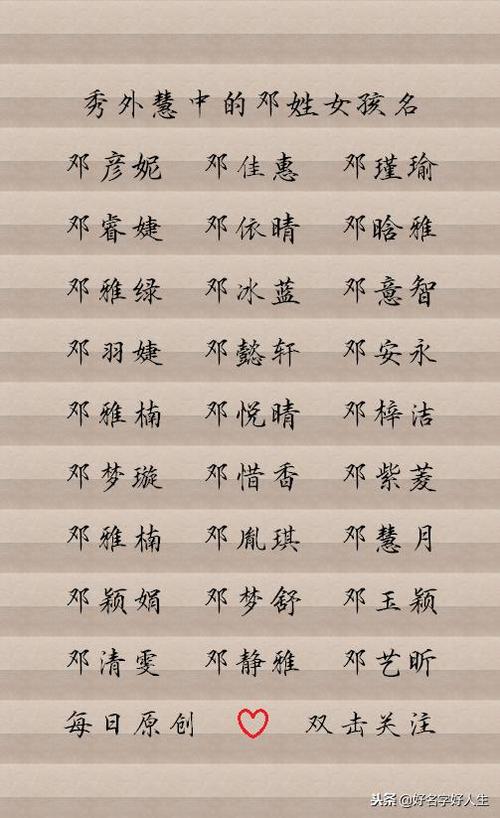 秀外慧中的邓姓女孩名
邓彦妮 邓佳惠 邓瑾瑜
邓睿婕 邓依晴 邓晗雅
邓雅绿 邓冰蓝 邓意智
邓羽婕 邓懿轩 邓安永
邓雅楠 邓悦晴 邓梓洁
邓梦璇 邓惜香 邓紫菱
邓雅楠 邓胤琪 邓慧月
邓颖娟 邓梦舒 邓玉颖
邓清雯 邓静雅 邓艺昕
每日原创 双击关注
头条@好名字好人生